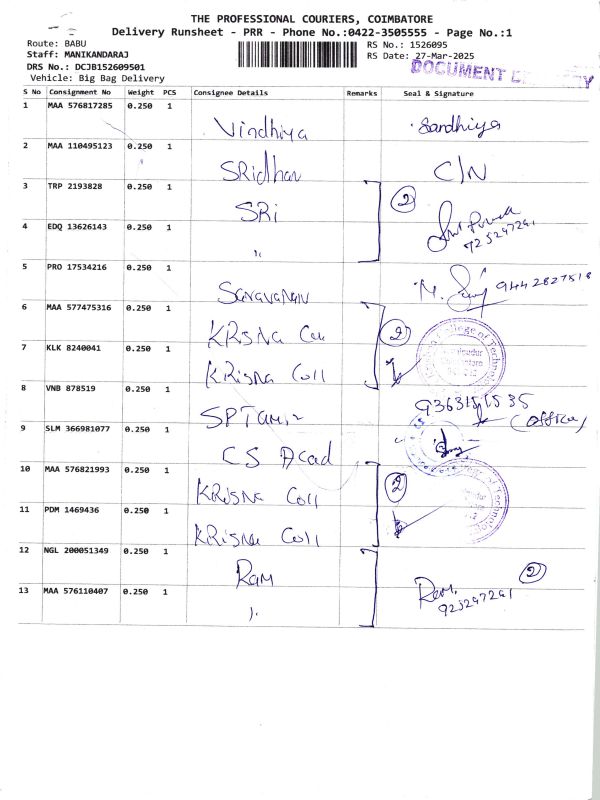 THE PROFESSIONAL COURIERS, COIMBATORE
Delivery Runsheet - PRR - Phone No.:0422-3505555 - Page No.:1
Route: BABU
RS No.: 1526095
Staff: MANIKANDARAJ
RS Date: 27-Mar-2025
DRS No.: DCJB152609501
DOCUMENT
Vehicle: Big Bag Delivery
S No Consignment No Weight PCS Consignee Details Remarks Seal & Signature
1 MAA 576817285 0.250 1
Vindhiya Sandhiya
2 MAA 110495123 0.250 1
SRidhar C/N
3 TRP 2193828 0.250 1
SRi 2
4 EDQ 13626143 0.250 1
"
5 PRO 17534216 0.250 1
Saravanan 9442827518
6 MAA 577475316 0.250 1
KRisna 2
7 KLK 8240041 0.250 1
KRisna Coll
College of Technology
8 VNB 878519 0.250 1
(office)
9 SLM 366981077 0.250 1
CS Acad
10 MAA 576821993 0.250 1
KRisna Coll 2
11 PDM 1469436 0.250 1
KRisna Coll
of Technology
12 NGL 200051349 0.250 1
Ram Ram 2
13 MAA 576110407 0.250 1
"